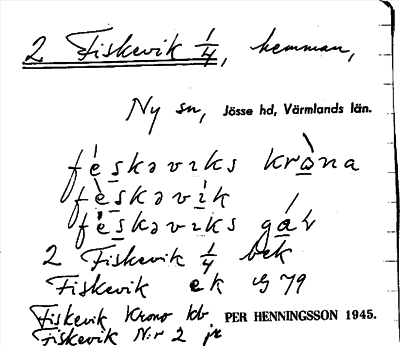 2 Fiskevik 1/4, hemman,
Ny sn, Jösse hd, Värmlands län.
fèskəvıks kròna
fèskəvík
fèskəvıks gáɽ
2 Fiskevik 1/4 bek
Fiskevik ek 79
Fiskevik Krono kb PER HENNINGSSON 1945.
Fiskevik N:r 2 jr